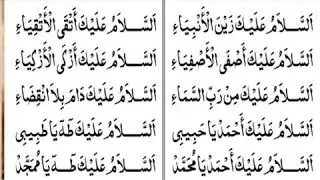 اَلسَّلَامُ عَلَيْكَ زَيْنَ الْأَنْبِيَاءِ
اَلسَّلَامُ عَلَيْكَ أَتْقَى الْأَتْقِيَاءِ
اَلسَّلَامُ عَلَيْكَ أَصْفَى الْأَصْفِيَاءِ
اَلسَّلَامُ عَلَيْكَ أَزْكَى الْأَزْكِيَاءِ
اَلسَّلَامُ عَلَيْكَ مِنْ رَبِّ السَّمَاءِ
اَلسَّلَامُ عَلَيْكَ دَامَ بِلَا انْقِضَاءِ
اَلسَّلَامُ عَلَيْكَ أَحْمَدْ يَا حَبِيبِى
اَلسَّلَامُ عَلَيْكَ طٰهَ يَا طَبِيبِى
اَلسَّلَامُ عَلَيْكَ أَحْمَدْ يَا مُحَمَّدْ
اَلسَّلَامُ عَلَيْكَ طٰهَ يَا مُمَجَّدْ